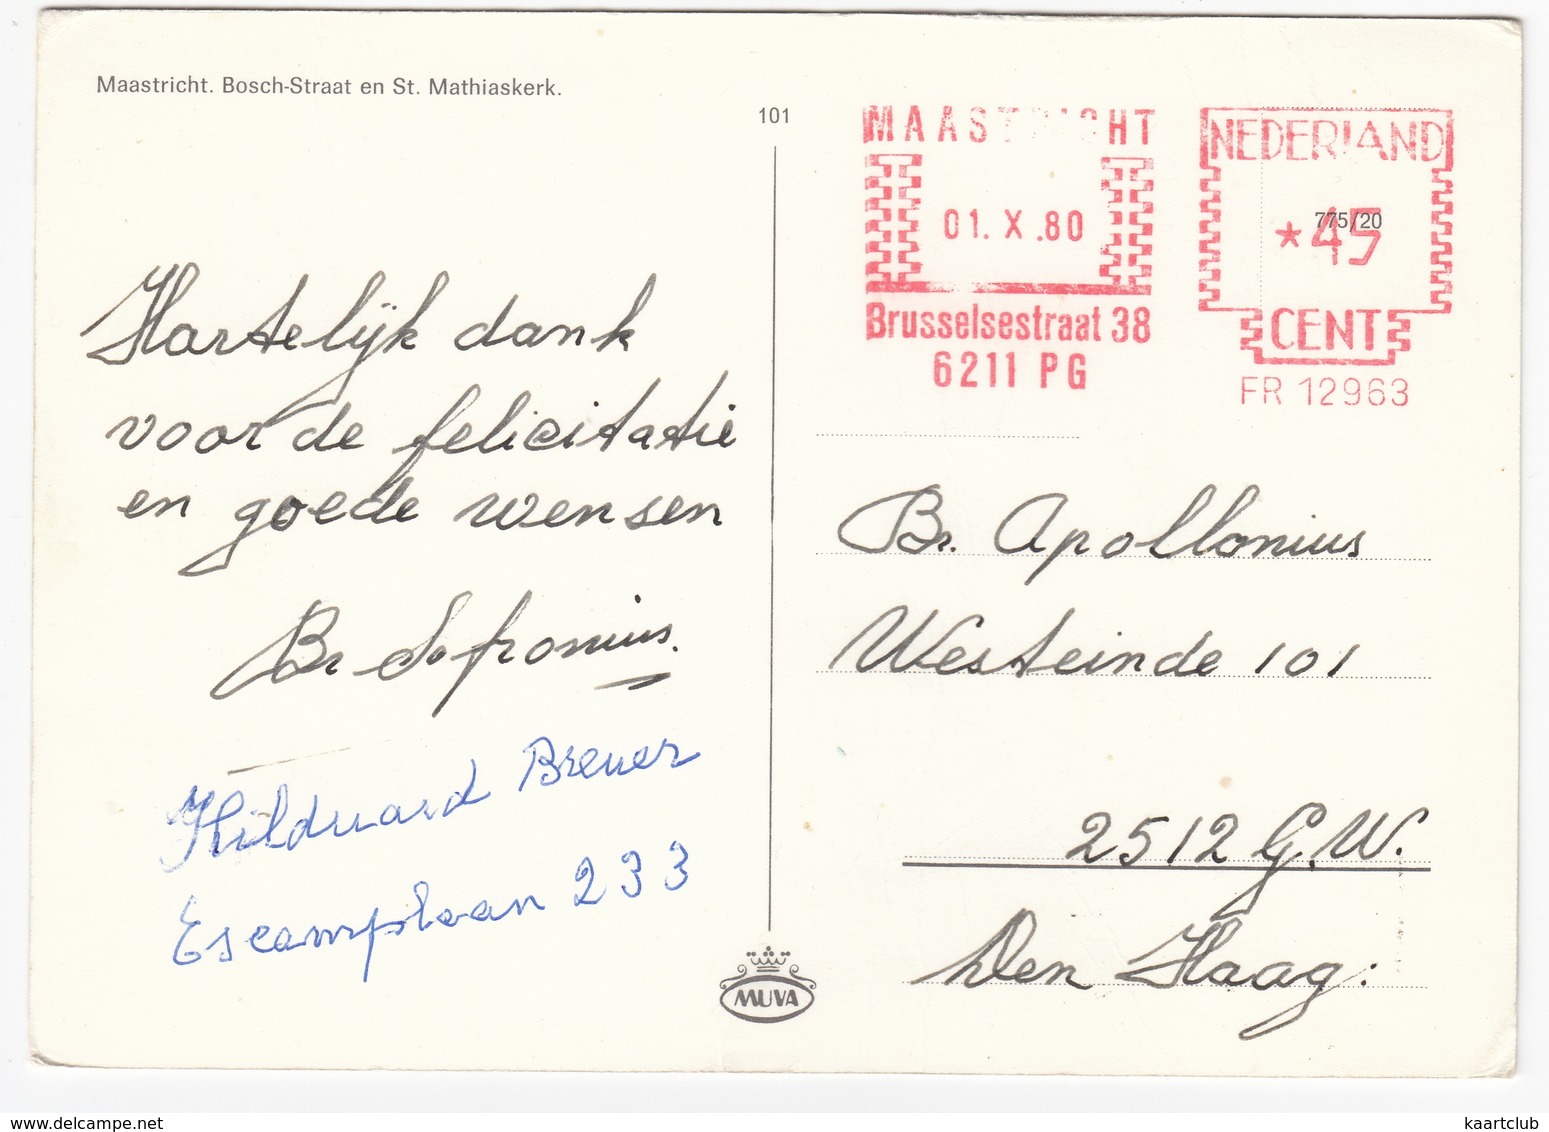 Maastricht. Bosch-Straat en St. Mathiaskerk.
101
MAASTRICHT
01. X .80
Brusselsestraat 38
6211 PG
NEDERLAND
775/20
*45
CENT
FR 12963
Hartelijk dank
voor de felicitatie
en goede wensen
Br Sofronius.
Hilduard Breuer
Escamplaan 233
Br. Apollonius
Westeinde 101
2512 G.W.
Den Haag.
MUVA
www.delcampe.net
kaartclub